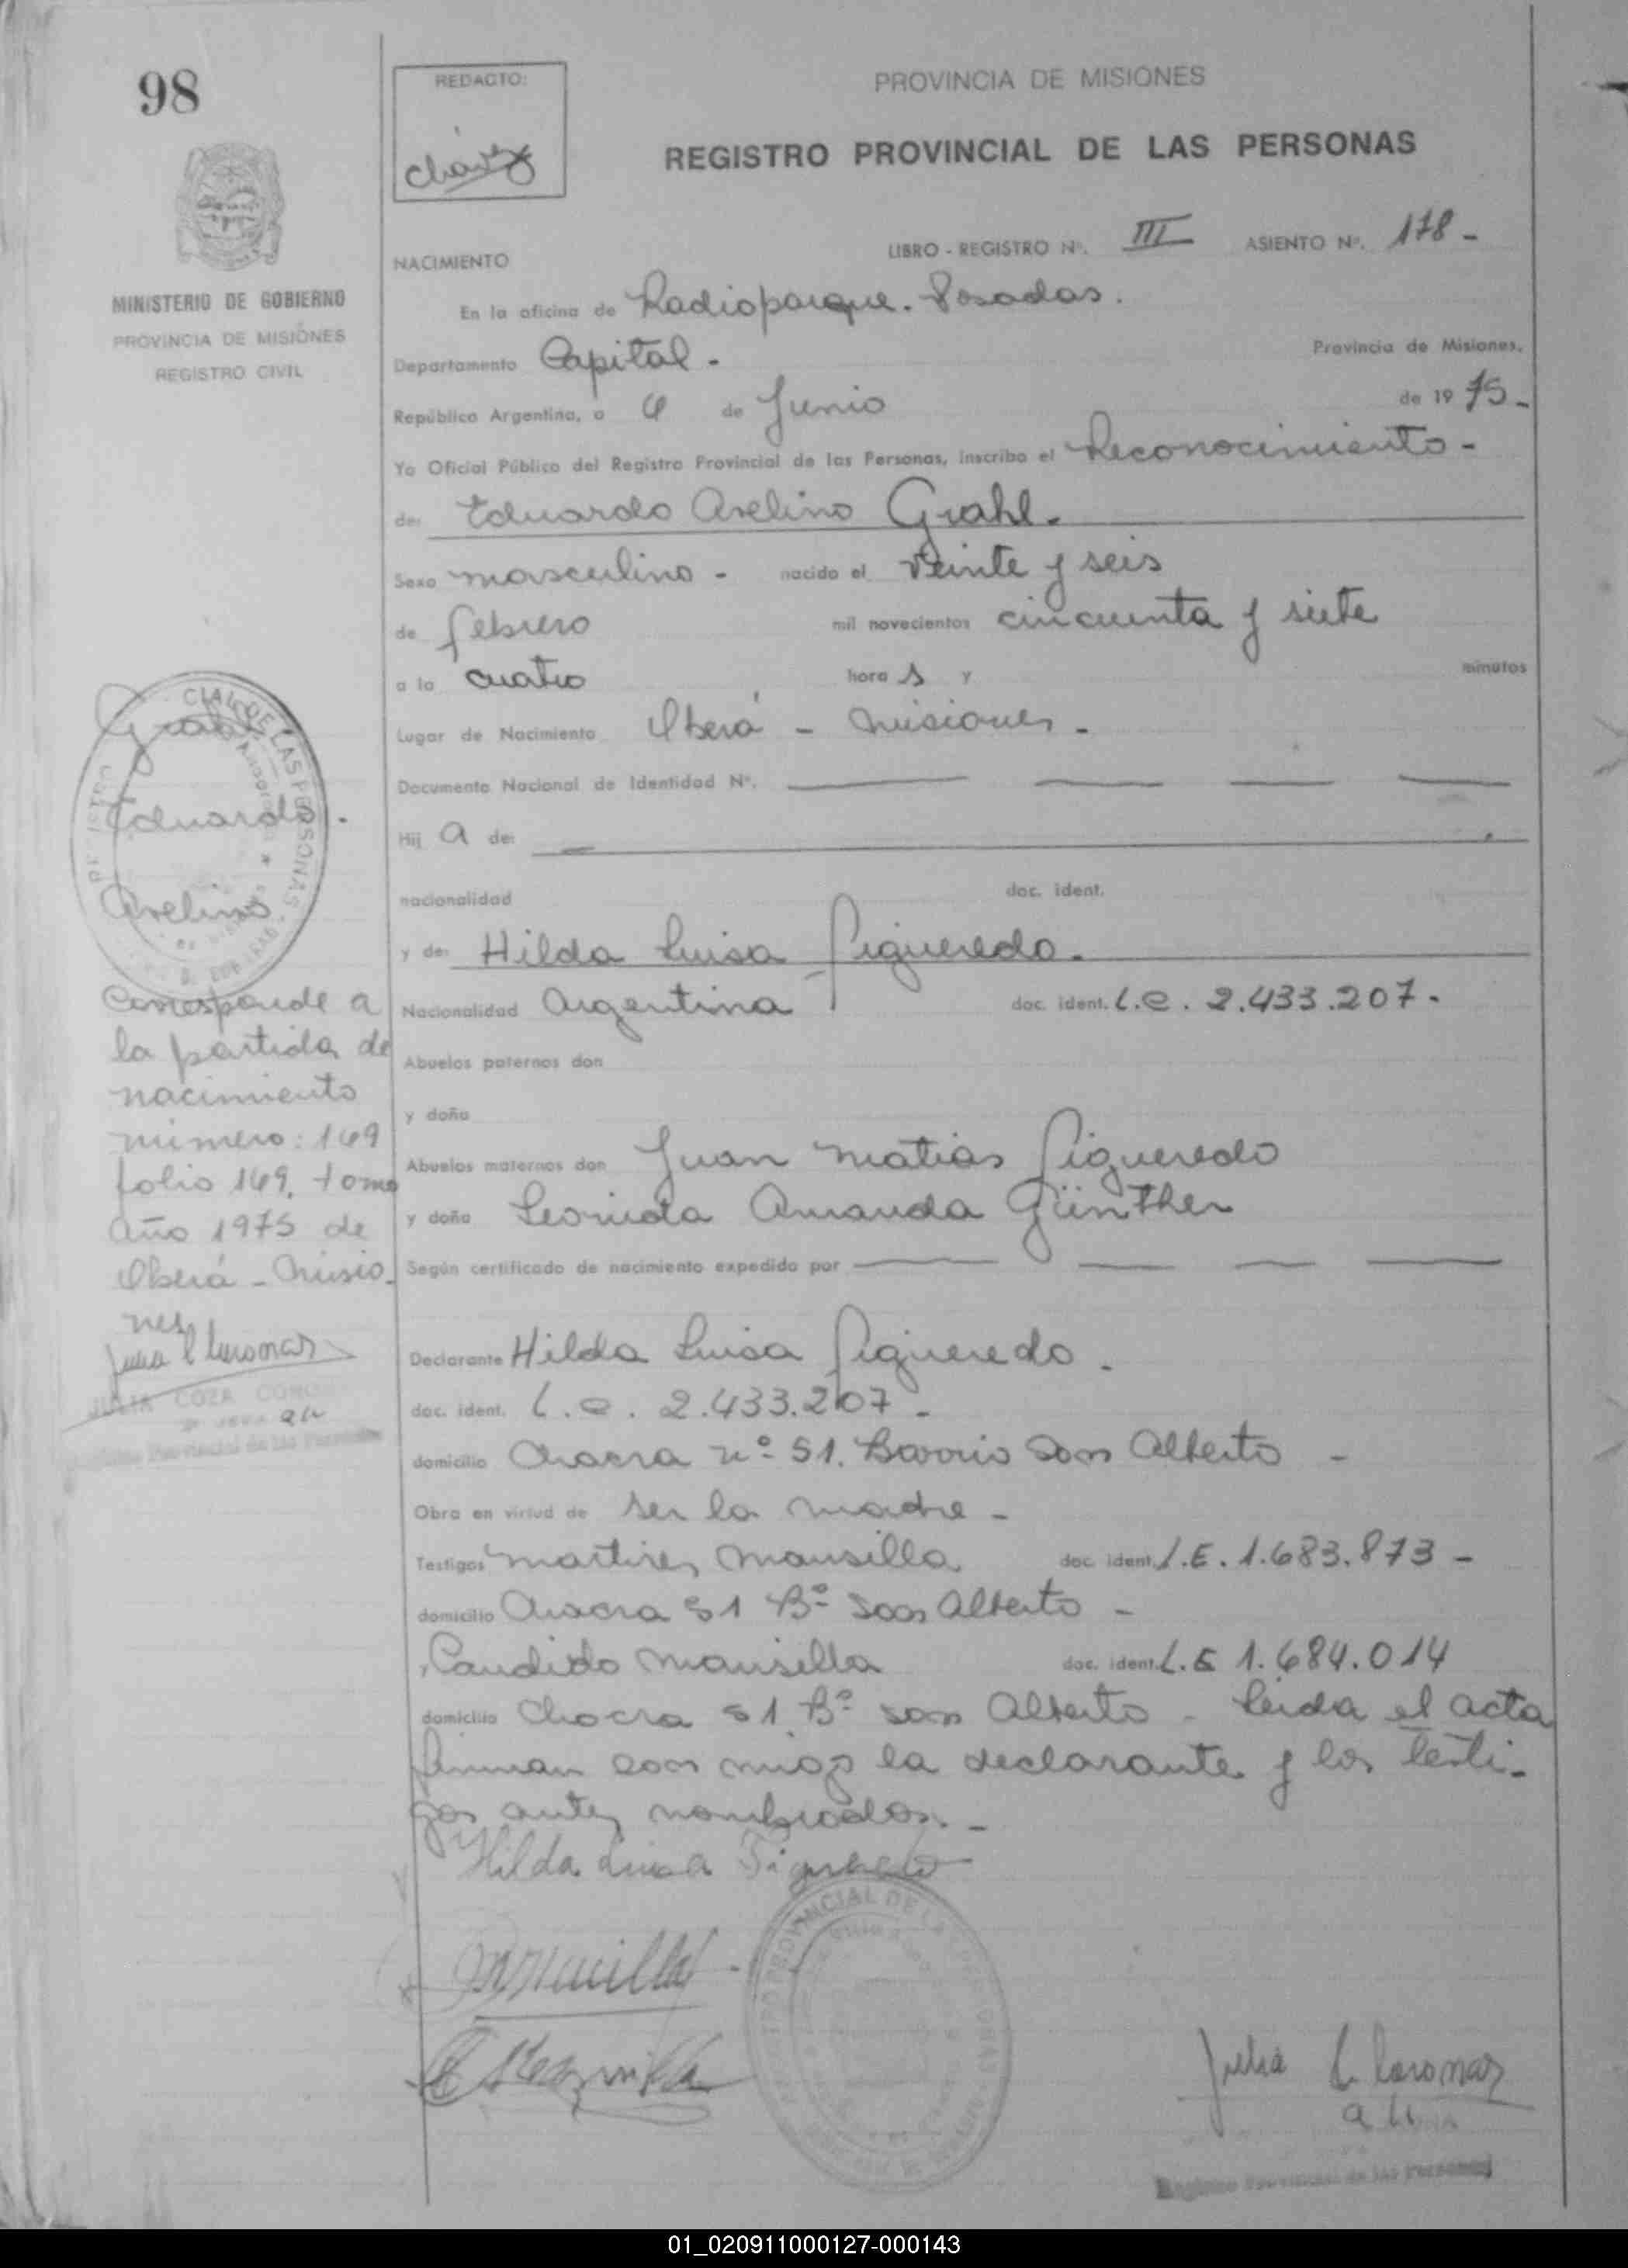 98
REDACTO:
Chávez
PROVINCIA DE MISIONES
REGISTRO PROVINCIAL DE LAS PERSONAS
LIBRO - REGISTRO Nº. III ASIENTO Nº. 178 -
NACIMIENTO
MINISTERIO DE GOBIERNO
PROVINCIA DE MISIONES
REGISTRO CIVIL
En la oficina de Radioparque. Posadas.
Departamento Capital - Provincia de Misiones,
República Argentina, a 4 de Junio de 1975 -
Yo Oficial Público del Registro Provincial de las Personas, inscribo el Reconocimiento -
de: Eduardo Avelino Grahl.
Sexo masculino - nacido el veinte y seis
de febrero mil novecientos cincuenta y siete
a la cuatro hora s y minutos
Lugar de Nacimiento Oberá - Misiones -
Documento Nacional de Identidad Nº.
Hij a de:
nacionalidad doc. ident.
y de: Hilda Luisa Figueredo.
Nacionalidad Argentina doc. ident. L.C. 2.433.207.
Abuelos paternos don
y doña
Abuelos maternos don Juan Matias Figueredo
y doña Leonida Amanda Günther
Según certificado de nacimiento expedido por
Declarante Hilda Luisa Figueredo.
doc. ident. L.C. 2.433.207 -
domicilio Chacra nº 51. Barrio San Alberto -
Obra en virtud de ser la madre -
Testigos Martires Mansilla doc. ident. L.E. 1.683.873 -
domicilio Chacra 51 Bº San Alberto -
Candido Mansilla doc. ident. L.E 1.684.014
domicilio Chacra 51 Bº San Alberto - leida el acta
firman la declarante y los testi-
gos antes nombrados. -
Hilda Luisa Figueredo
Grahl
Eduardo.
Avelino
Corresponde a
la partida de
nacimiento
número: 169
folio 169, tomo
año 1975 de
Oberá - Misio-
nes
JULIA COZA
Registro Provincial de las Personas
Julia
Registro Provincial de las Personas
01_020911000127-000143